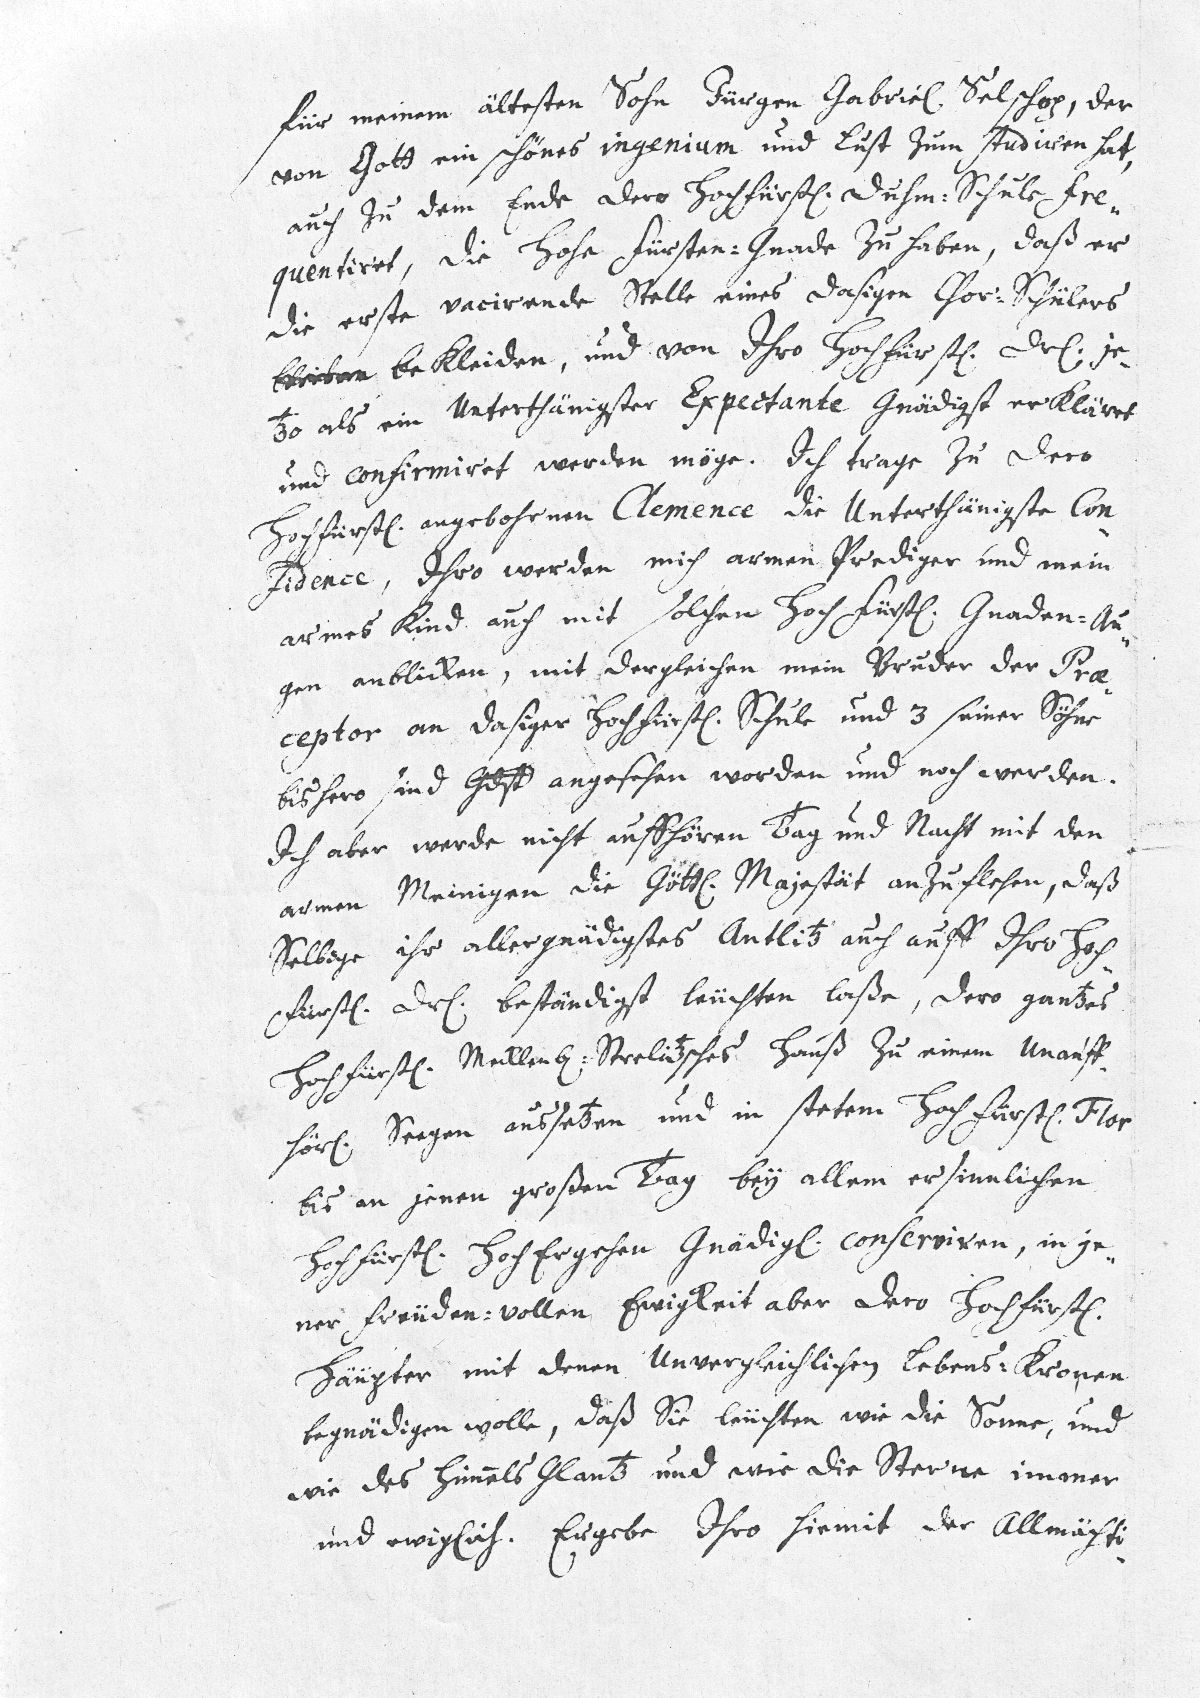 für meinem ältesten Sohn Jürgen Gabriel Selschop, der
von Gott ein schönes ingenium und Lust zum studiren hat,
auch zu dem Ende dero Hochfürstl. Duhm-Schule fre-
quentiret, die hohe Fürsten-Gnade zu haben, daß er
die erste vacirende Stelle eines dasigen Chor-Schülers
bekleiden, und von Ihro Hochfürstl. Drl. je-
tzo als ein Unterthänigster Expectante Gnädigst erkläret
und confirmiret werden möge. Ich trage zu dero
Hochfürstl. angebohrnen Clemence die Unterthänigste Con-
fidence, Ihro werden mich armen Prediger und mein
armes Kind auch mit solchen Hochfürstl. Gnaden-Au-
gen anblicken, mit dergleichen mein Bruder der Præ-
ceptor an dasiger Hochfürstl. Schule und 3 seiner Söhne
bishero sind Gdst angesehen worden und noch werden.
Ich aber werde nicht auffhören Tag und Nacht mit den
armen Meinigen die Göttl. Majestät anzuflehen, daß
Selbige ihr allergnädigstes Antlitz auch auff Ihro Hoch-
fürstl. Drl. beständigst leüchten laße, dero gantzes
Hochfürstl. Mecklenb-Strelitzsches Hauß zu einem Unauff-
hörl. Seegen aussetzen und in stetem Hochfürstl. Flor
bis an jenen großen Tag bey allem ersinnlichen
Hochfürstl. HochErgehen Gnädigl. conserviren, in je-
ner freüden-vollen Ewigkeit aber dero Hochfürstl.
Häupter mit denen Unvergleichlichen Lebens-Kronen
begnädigen wolle, daß Sie leüchten wie die Sonne, und
wie des Himels Glantz und wie die Sterne immer
und ewiglich. Ergebe Ihro hiemit der Allmächti-